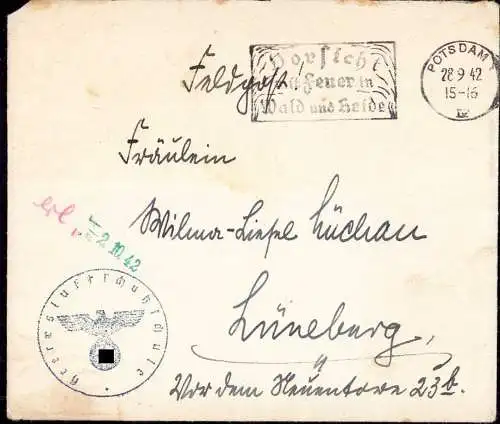 Feldpost!
Vorsicht
mit Feuer in
Wald und Heide
POTSDAM
28.9.42
15-16
Fräulein
Wilma-Liesel Lüchau
erl.
2.10.42
Heeresluftschutzschule
Lüneburg,
Vor dem Neuentore 23b.